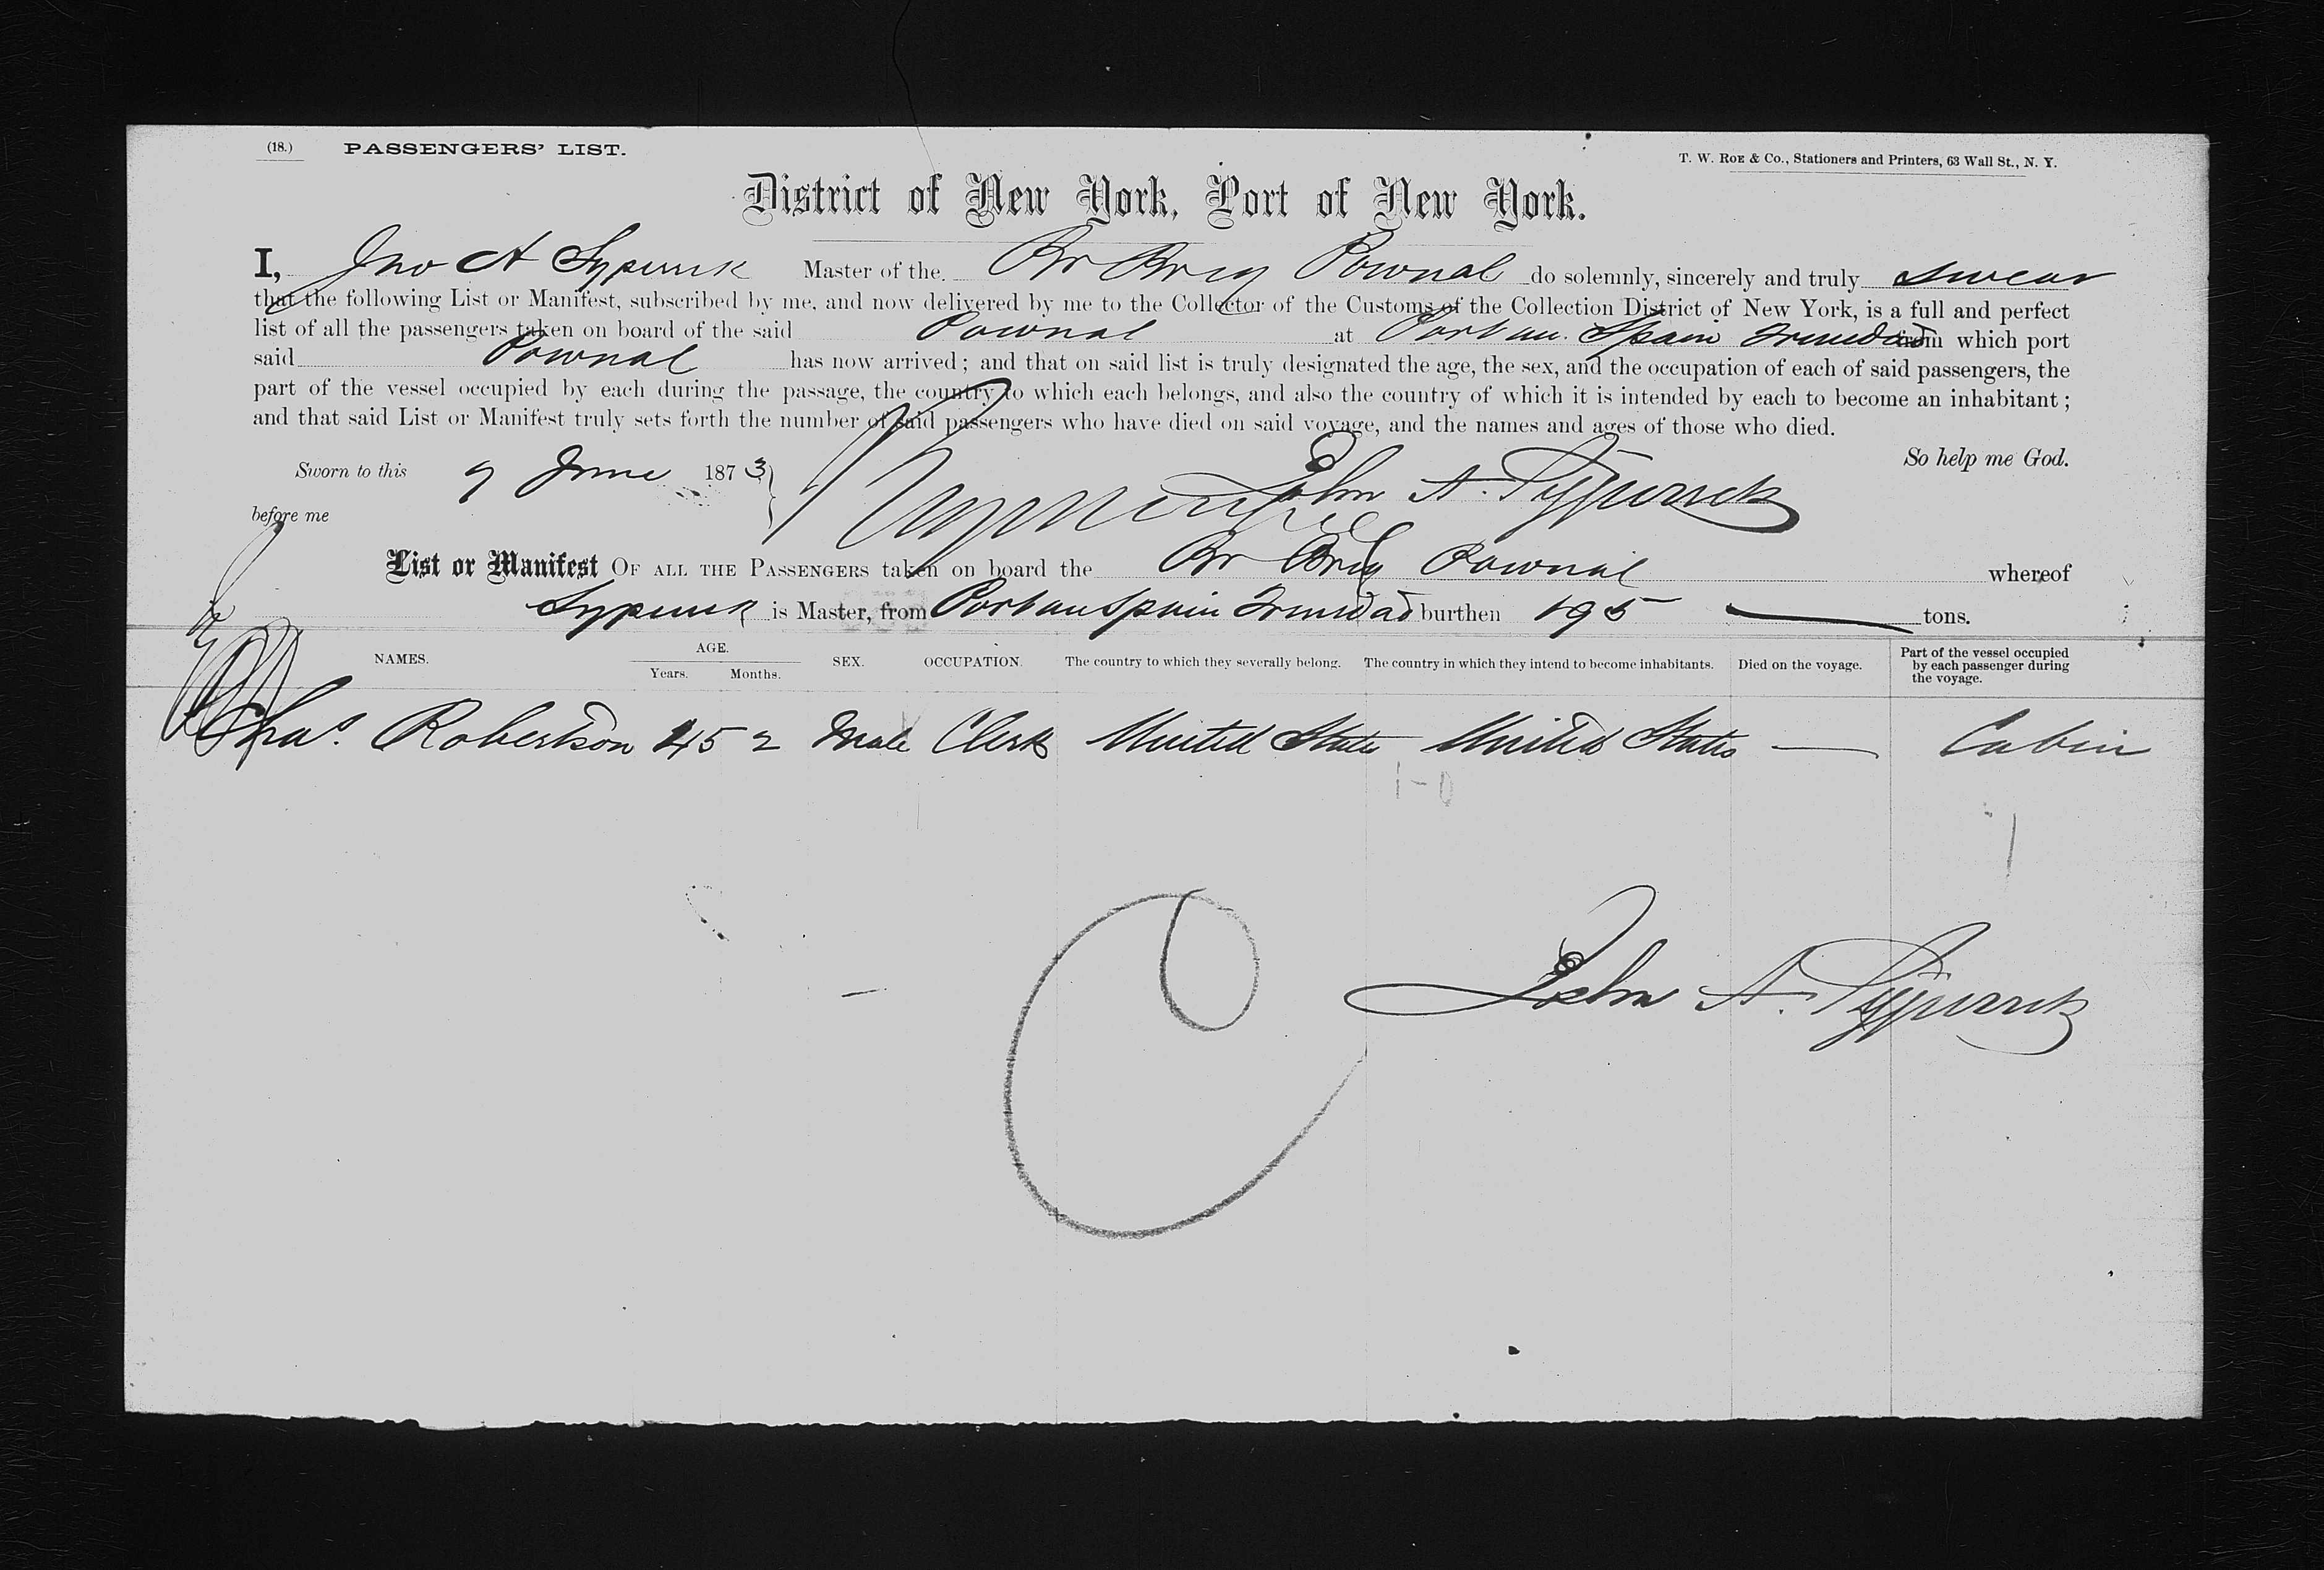 (18.) PASSENGERS' LIST.
T. W. ROE & Co., Stationers and Printers, 63 Wall St., N. Y.
District of New York, Port of New York.
I, Jno A Master of the Br Brig Pownal do solemnly, sincerely and truly swear
that the following List or Manifest, subscribed by me, and now delivered by me to the Collector of the Customs of the Collection District of New York, is a full and perfect
list of all the passengers taken on board of the said Pownal at Port au Spain Trinidad from which port
said Pownal has now arrived; and that on said list is truly designated the age, the sex, and the occupation of each of said passengers, the
part of the vessel occupied by each during the passage, the country to which each belongs, and also the country of which it is intended by each to become an inhabitant;
and that said List or Manifest truly sets forth the number of said passengers who have died on said voyage, and the names and ages of those who died.
So help me God.
Sworn to this 9 June 1873
John A.
before me
List or Manifest OF ALL THE PASSENGERS taken on board the Br Brig Pownal whereof
is Master, from Port au Spain Trinidad burthen 195 — tons.
NAMES. AGE. Years. Months. SEX. OCCUPATION. The country to which they severally belong. The country in which they intend to become inhabitants. Died on the voyage. Part of the vessel occupied by each passenger during the voyage.
Chas. Robertson 45 2 Male Clerk United State United States — Cabin
1-0
1
John A.